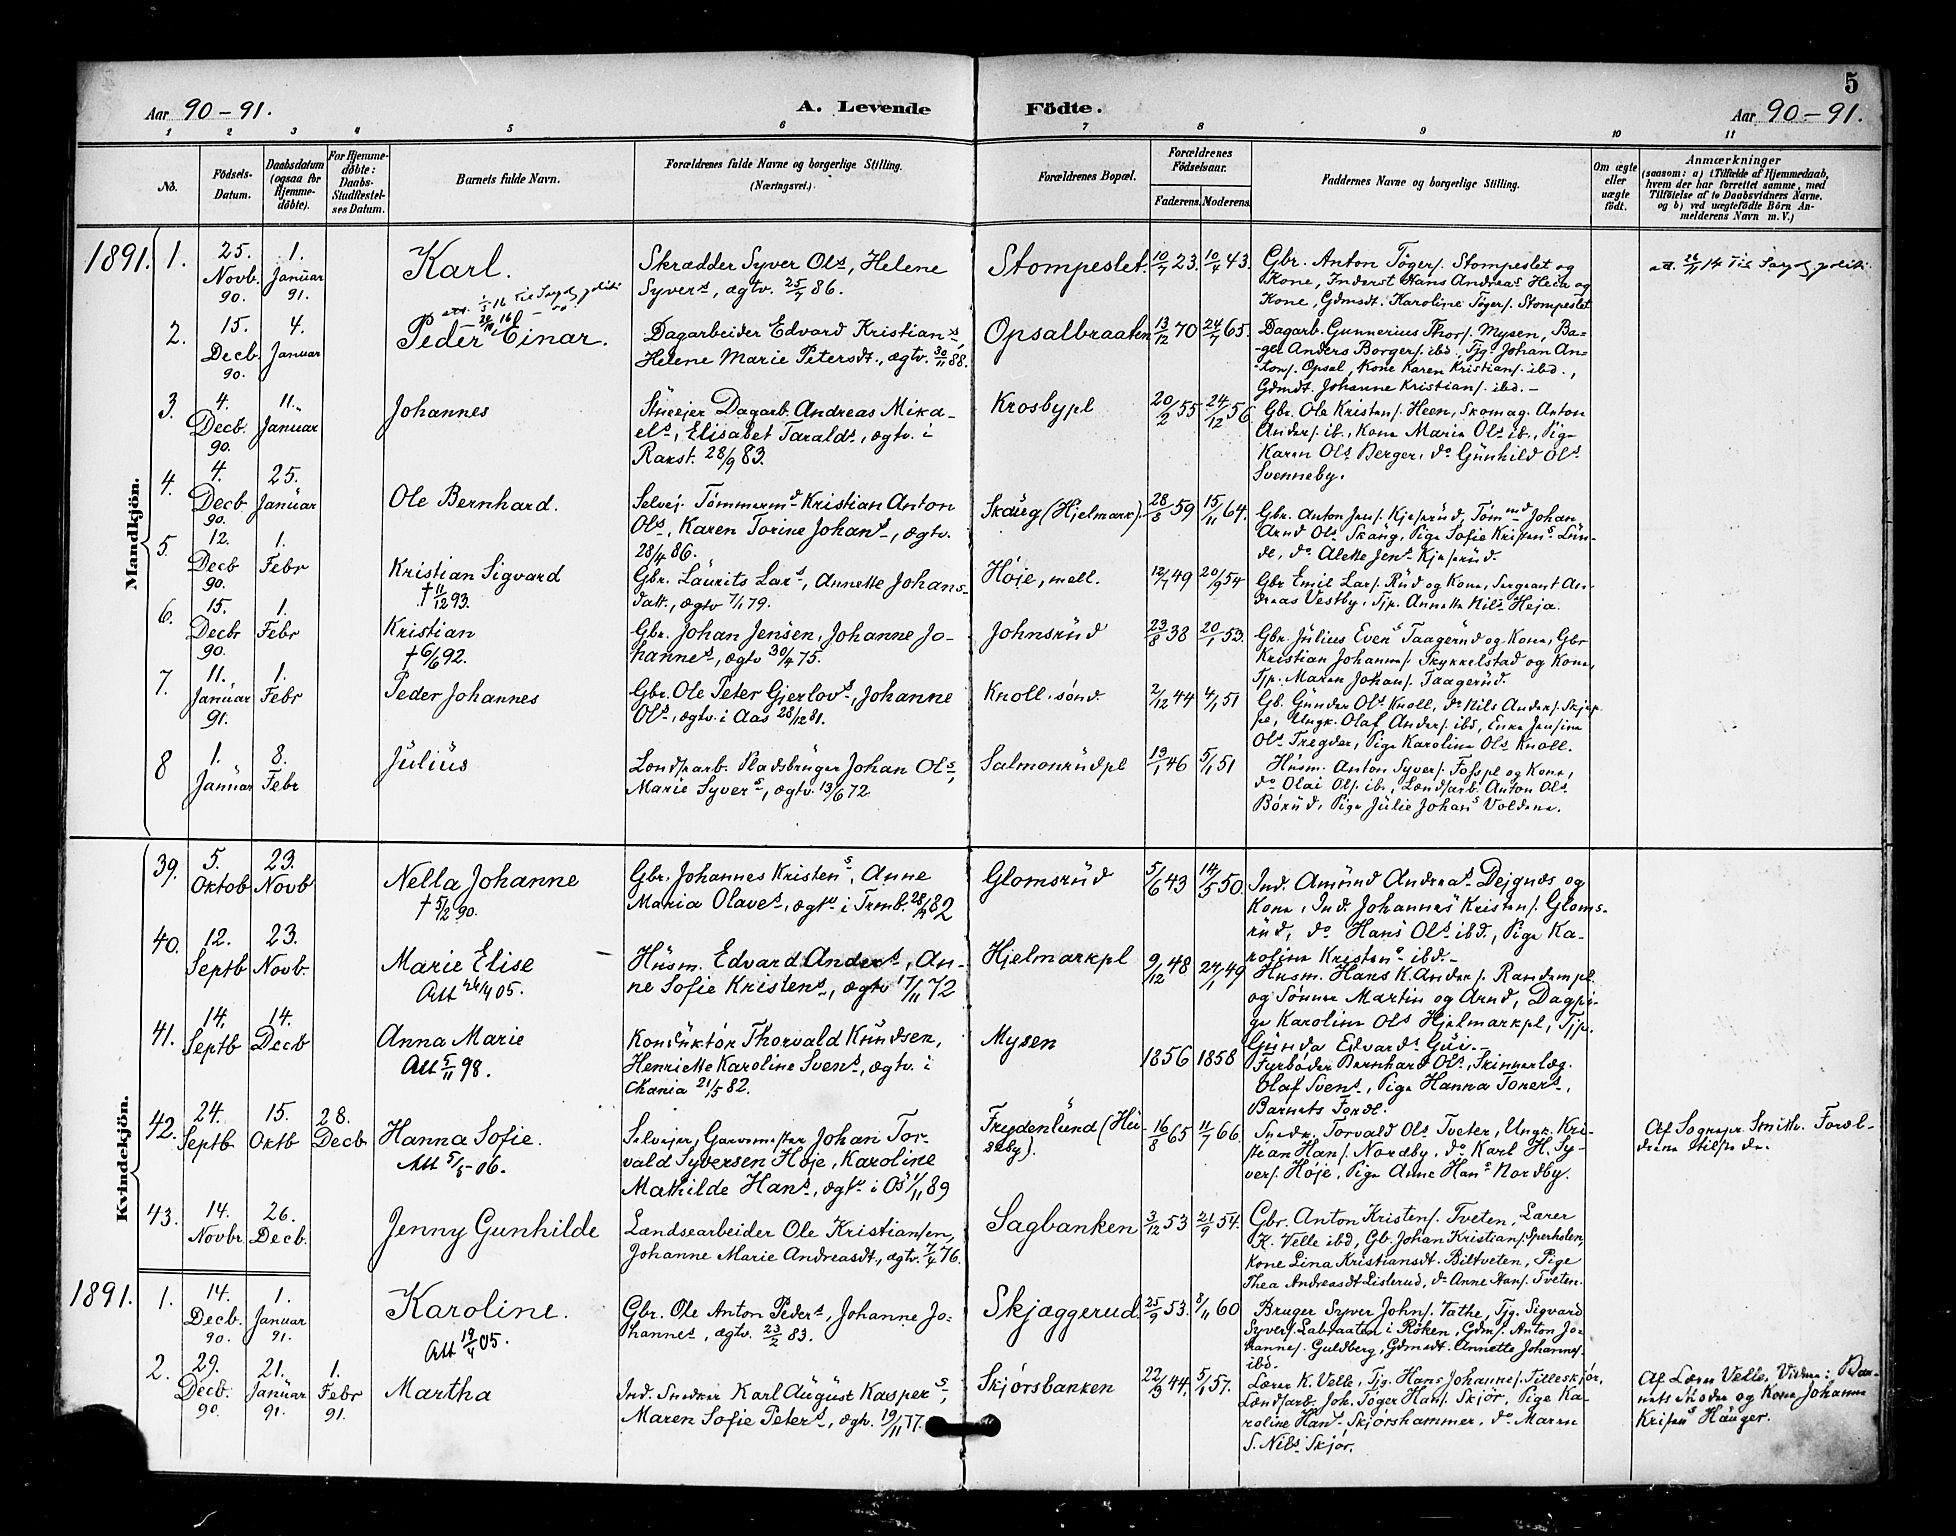 5
Aar 90-91. A. Levende Födte. Aar 90-91.
1 2 3 4 5 6 7 8 9 10 11
No.
Födsels-
Datum.
Daabsdatum
(ogsaa for
Hjemme-
döbte).
For Hjemme-
döbte:
Daabs-
Stadfæstel-
ses Datum.
Barnets fulde Navn.
Forældrenes fulde Navne og borgerlige Stilling.
(Næringsvei.)
Forældrenes Bopæl.
Forældrenes
Födselsaar.
Faderens. Moderens.
Faddernes Navne og borgerlige Stilling.
Om ægte
eller
uægte
födt.
Anmærkninger
(saasom: a) i Tilfælde af Hjemmedaab,
hvem der har forrettet samme, med
Tilföielse af to Daabsvidners Navne.
og b) ved uægtefödte Börn An-
melderens Navn m. V.)
Mandkjön.
1891. 1.
25.
Novb.
90.
1.
Januar
91.
Karl.
Skrædder Syver Ols, Helene
Syvers, ægtv. 25/7 86.
Stompeslet.
10/7 23. 10/4 43.
Gbr. Anton Tøgers. Stompeslet og
Kone, Inderst Hans Andreas Heia og
Kone, Gdmsdt. Karoline Tøgers. Stompeslet
2.
15.
Decb.
90.
4.
Januar
Peder Einar.
Dagarbeider Edvard Kristians,
Helene Marie Petersdt., ægtv. 30/11 88.
Opsalbraaten
13/12 70 24/7 65.
Dagarb. Gunnerius Thors. Mysen, Ba-
ger Anders Borgers. ibd, Tjg. Johan An-
tons. Opsal, Kone Karen Kristians. ibd.,
Gdmdt. Johanne Kristians. ibd.-
3.
4.
Decb.
90.
11.
Januar
Johannes
Stueejer Dagarb. Andreas Mika-
els, Elisabet Taralds, ægtv. i
Rakst. 28/9 83.
Krosbypl
20/2 55 24/12 56
Gbr. Ole Kristens. Heen, Skomag. Anton
Anders. ib., Kone Marie Ols ib., Pige
Karen Ols Berger, do Gunhild Ols
Svenneby.
4.
4.
Decb
90.
25.
Januar
Ole Bernhard.
Selvej. Tømmermd Kristian Anton
Ols, Karen Torine Johans, ægtv.
28/4 86.
Skaug (Hjelmark).
28/8 59 15/11 64.
Gbr. Anton Jens. Kjeserud, Tømmd Johan
Arnd Ols Skaug, Pige Sofie Kristens Lun-
de, do Alette Jens Kjeserud.
5.
12.
Decb
90.
1.
Febr
Kristian Sigvard
† 11/12 93.
Gbr. Laurits Lars, Annette Johans-
datt., ægtv 7/1 79.
Høje, mell.
12/7 49 20/9 54
Gbr Emil Lars. Rud og Kone, Sergeant An-
dreas Vestby, Tjp. Annette Nils Heja.
6.
15.
Decbr
90.
1.
Febr
Kristian
† 6/6 92.
Gbr. Johan Jensen, Johanne Jo-
hannes, ægtv 30/4 75.
Johnsrud
23/8 38 20/1 53.
Gbr. Julius Evens Taagerud og Kone, Gbr
Kristian Johanns. Trykkelstad og Kone,
Tjp. Maren Johans. Taagerud.
7.
11.
Januar
91.
1.
Febr
Peder Johannes
Gbr. Ole Peter Gjerlovs, Johanne
Ols, ægtv. i Aas 28/12 81.
Knoll. sønd
2/12 44 4/1 51
Gb. Gunder Ols Knoll, do Nils Anders. Skjep-
pe, Ungk. Olaf Anders. ibd, Enke Jensine
Ols Tregder, Pige Karoline Ols Knoll.
8
1.
Januar
8.
Febr
Julius
Londsarb. Pladsbruger Johan Ols,
Marie Syvers, ægtv. 13/6 72
Salmonrudpl
19/1 46 5/1 51
Husm. Anton Syvers. Fosspl og Kone,
do Olai Ols. ib., Lændsarb. Anton Ols
Børud, Pige Julie Johans Voldene.
Kvindekjön.
39.
5.
Oktob
23.
Novb
Nella Johanne
† 5/2 90.
Gbr. Johannes Kristens, Anne
Maria Olaves, ægtv i Tromb. 82
Glomsrud
5/6 43 14/5 50.
Ind. Amund Andreas Dejgnæs og
Kone, Ind. Johannes Kristens. Gloms-
rud, do Hans Ols ibd., Pige Ka-
roline Kristens ibd.-
40.
12.
Septb
23.
Novb.
Marie Elise
Att 24/4 05.
Husm. Edvard Anders, An-
ne Sofie Kristens, ægtv 17/11 72
Hjelmarkpl
9/12 48 24/1 49
Husm. Hans K. Anders. Randempl
og Sønner Martin og Arnd, Dagpi-
ge Karoline Ols Hjelmarkpl, Tjp.
Gunda Edvards Gui.-
41.
14.
Septb
14.
Decb
Anna Marie
Att 5/11 98.
Konduktør Thorvald Knudsen,
Henriette Karoline Svens, ægtv. i
Chania 21/5 82.
Mysen
1856 1858
Fyrbøder Bernhard Ols, Skinnerlæg.
Olaf Svens, Pige Hanna Toners,
Barnets Fordl.
42.
24.
Septb
15.
Oktb
28.
Decb
Hanna Sofie.
Att 5/5-06.
Selvejer, Garvermester Johan Tor-
vald Syversen Høje, Karoline
Mathilde Hans, ægtv i Os 1/11 89
Frydenlund (Hu-
seby).
16/8 65 11/7 66.
Snedk. Torvald Ols Tveter, Ungk. Kri-
stian Hans. Nordby, do Karl H. Sy-
vers. Høje, Pige Anne Hans Nordby.
Af Sognepr. Smith. Foræl-
drene tilstede.
43.
14.
Novbr.
26.
Decb.
Jenny Gunhilde
Lændsearbeider Ole Kristiansen,
Johanne Marie Andreasdt., ægtv. 7/4 76.
Sagbanken
3/12 53 21/9 54.
Gbr. Anton Kristens. Tveten, Lærer
K. Velle ibd, Gb. Johan Kristians. Sperholen,
Kone Lina Kristiansdt. Biltveten, Pige
Thea Andreasdt Listerud, do Anne Hans. Tveten.
1891. 1.
14.
Decb.
90.
1.
Januar
91.
Karoline.
Att 19/4 05.
Gbr. Ole Anton Peders, Johanne Jo-
hannes, ægtv. 23/2 83.
Skjæggerud.
25/9 53. 8/11 60
Bruger Syver Johns. Vathe, Tjg. Sigvard
Syvers. Labraaten i Røken, Gdms. Anton Jo-
hannes. Guldberg, Gdmsdt. Annette Johannes.
ibd.
2.
29.
Decb.
90.
21.
Januar
91.
1.
Febr
91.
Martha
Ind. Snedker Karl August Kaspers,
Maren Sofie Peters, ægtv. 19/11 77.
Skjørsbanken
22/9 44, 5/1 57.
Lærer K. Velle, Tjg. Hans Johannes. Lilleskjør,
Lændsarb. Joh. Tøger Hans. Skjør, Pige Ka-
roline Hans Skjørshammer, do Maren
S. Nils Skjør.
Af Lærer Velle, Vidner: Bar-
nets Moder og Kone Johanne
Kristens Hauger.